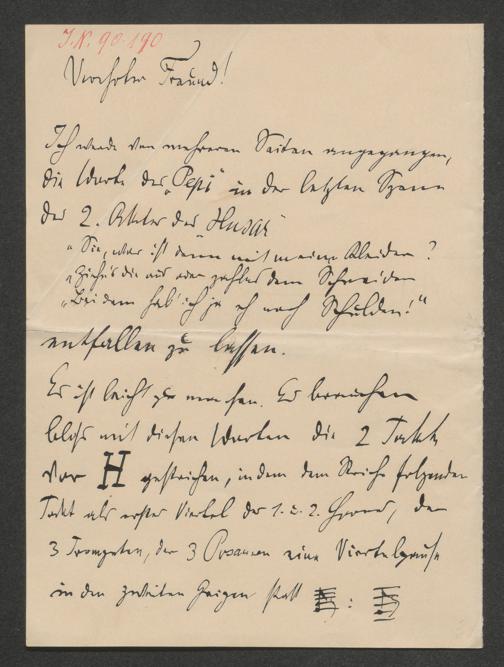 I.N. 90.190
Verehrter Freund!
Ich werde von mehreren Seiten angegangen,
die Worte des „Pepi“ in der letzten Szene
des 2. Aktes des Husar
„Sie, was ist denn mit meine Kleider?
„Ziehn's die aus oder zahlns dem Schneider
„Bei dem hab' ich ja eh noch Schulden!“
entfallen zu lassen.
Es ist leicht zu machen. Es brauchen
bloss mit diesen Worten die 2 Takte
vor H gestrichen, in dem dem Striche folgenden
Takt als erstes Viertel der 1. u. 2. Horn, der
3 Trompeten, der 3 Posaunen eine Viertelpause
in den zweiten Geigen statt :